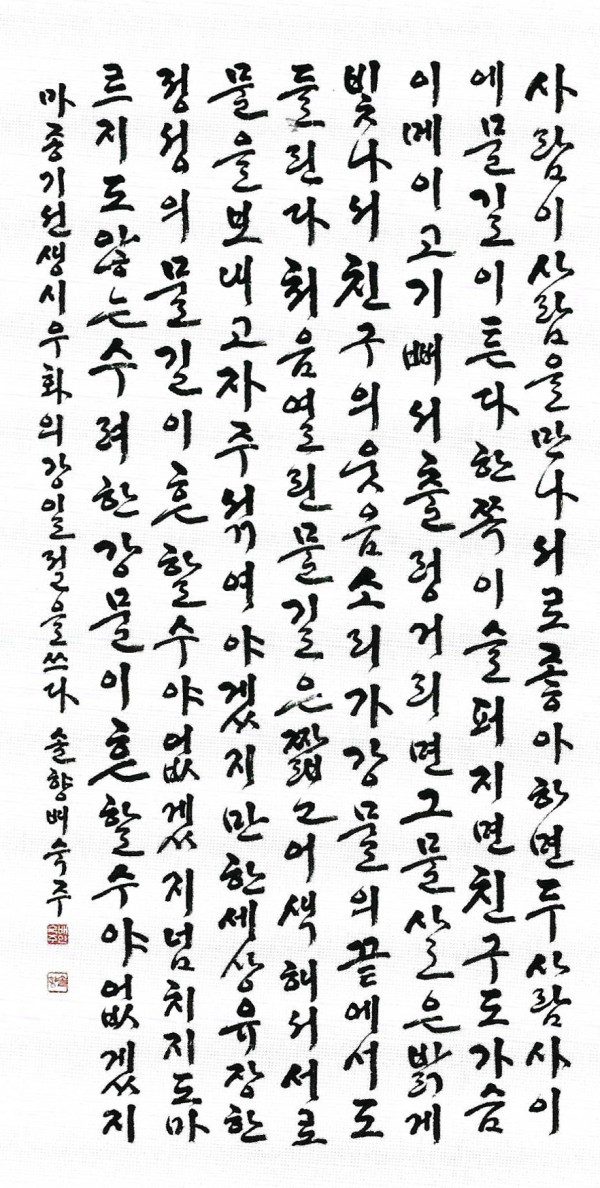 사람이사람을만나서로좋아하면두사람사이
에물길이튼다한쪽이슬퍼지면친구도가슴
이메이고기뻐서출렁거리면그물살은밝게
빛나서친구의웃음소리가강물의끝에서도
들린다처음열린물길은짧고어색해서서로
물을보내고자주섞여야겠지만한세상유장한
정성의물길이흔할수야없겠지넘치지도마
르지도않는수려한강물이흔할수야없겠지
마종기선생시우화의강일절을쓰다 솔향배숙주